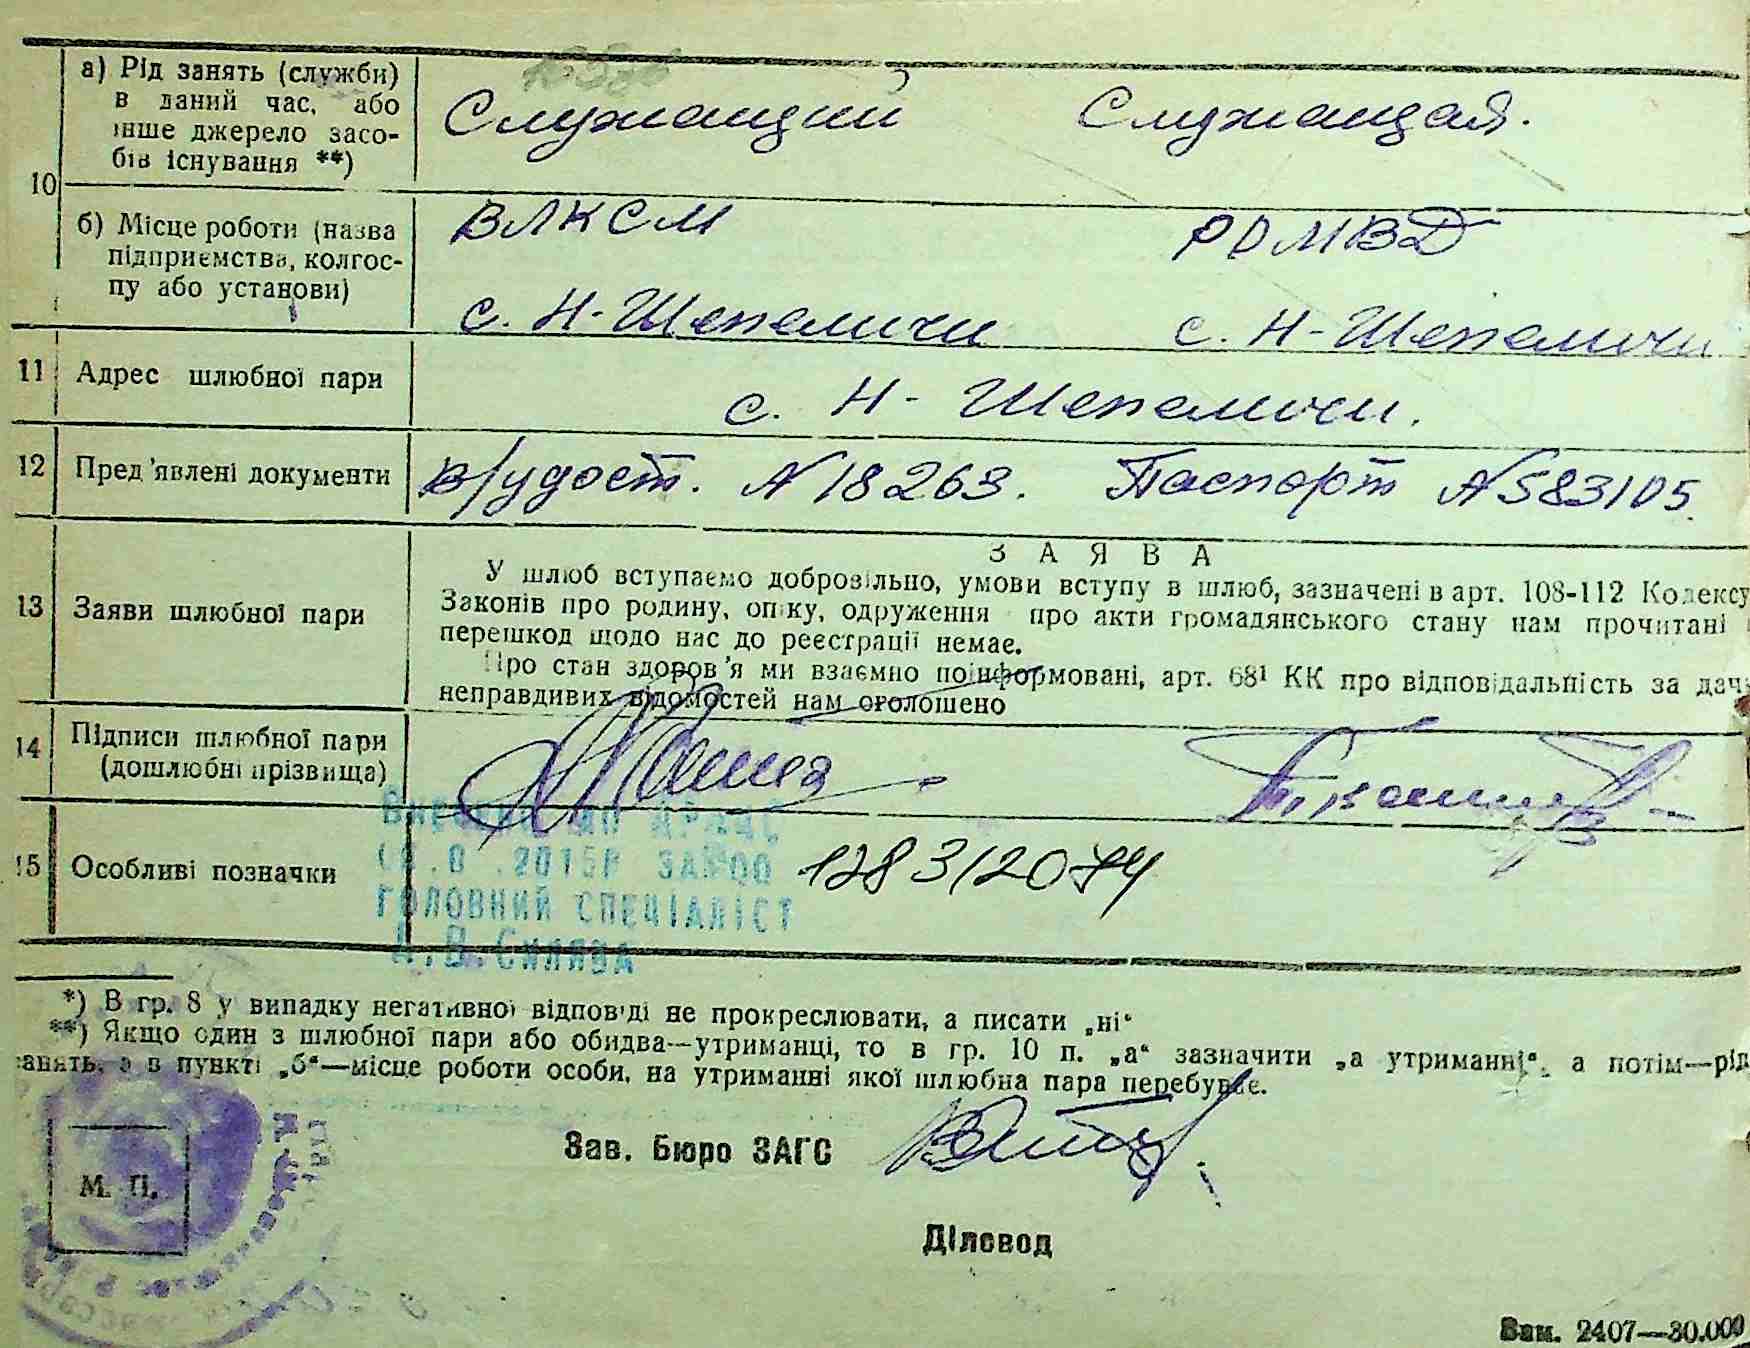 а) Рід занять (служби)
в даний час, або
інше джерело засо-
бів існування **)
Служащий Служащая.
10
б) Місце роботи (назва
підприємства, колгос-
пу або установи)
ВЛКСМ РОМВД
с. Н-Шепеличи с. Н-Шепеличи
11 Адрес шлюбної пари
с. Н-Шепеличи.
12 Пред'явлені документи в/удост. N18263. Паспорт N583105
ЗАЯВА
13 Заяви шлюбної пари
У шлюб вступаємо добровільно, умови вступу в шлюб, зазначені в арт. 108-112 Кодексу
Законів про родину, опіку, одруження про акти громадянського стану нам прочитані
перешкод щодо нас до реєстрації немає.
Про стан здоров'я ми взаємно поінформовані, арт. 68¹ КК про відповідальність за дач
неправдивих відомостей нам оголошено
14 Підписи шлюбної пари
(дошлюбні прізвища)
15 Особливі позначки
1283/2074
ГОЛОВНИЙ СПЕЦІАЛІСТ
*) В гр. 8 у випадку негативної відповіді не прокреслювати, а писати „ні“
**) Якщо один з шлюбної пари або обидва—утриманці, то в гр. 10 п. „а“ зазначити „а утриманні“, а потім—рід
занять, а в пункті „б“—місце роботи особи, на утриманні якої шлюбна пара перебуває.
Зав. Бюро ЗАГС
М. П.
Діловод
Зам. 2407—30.000